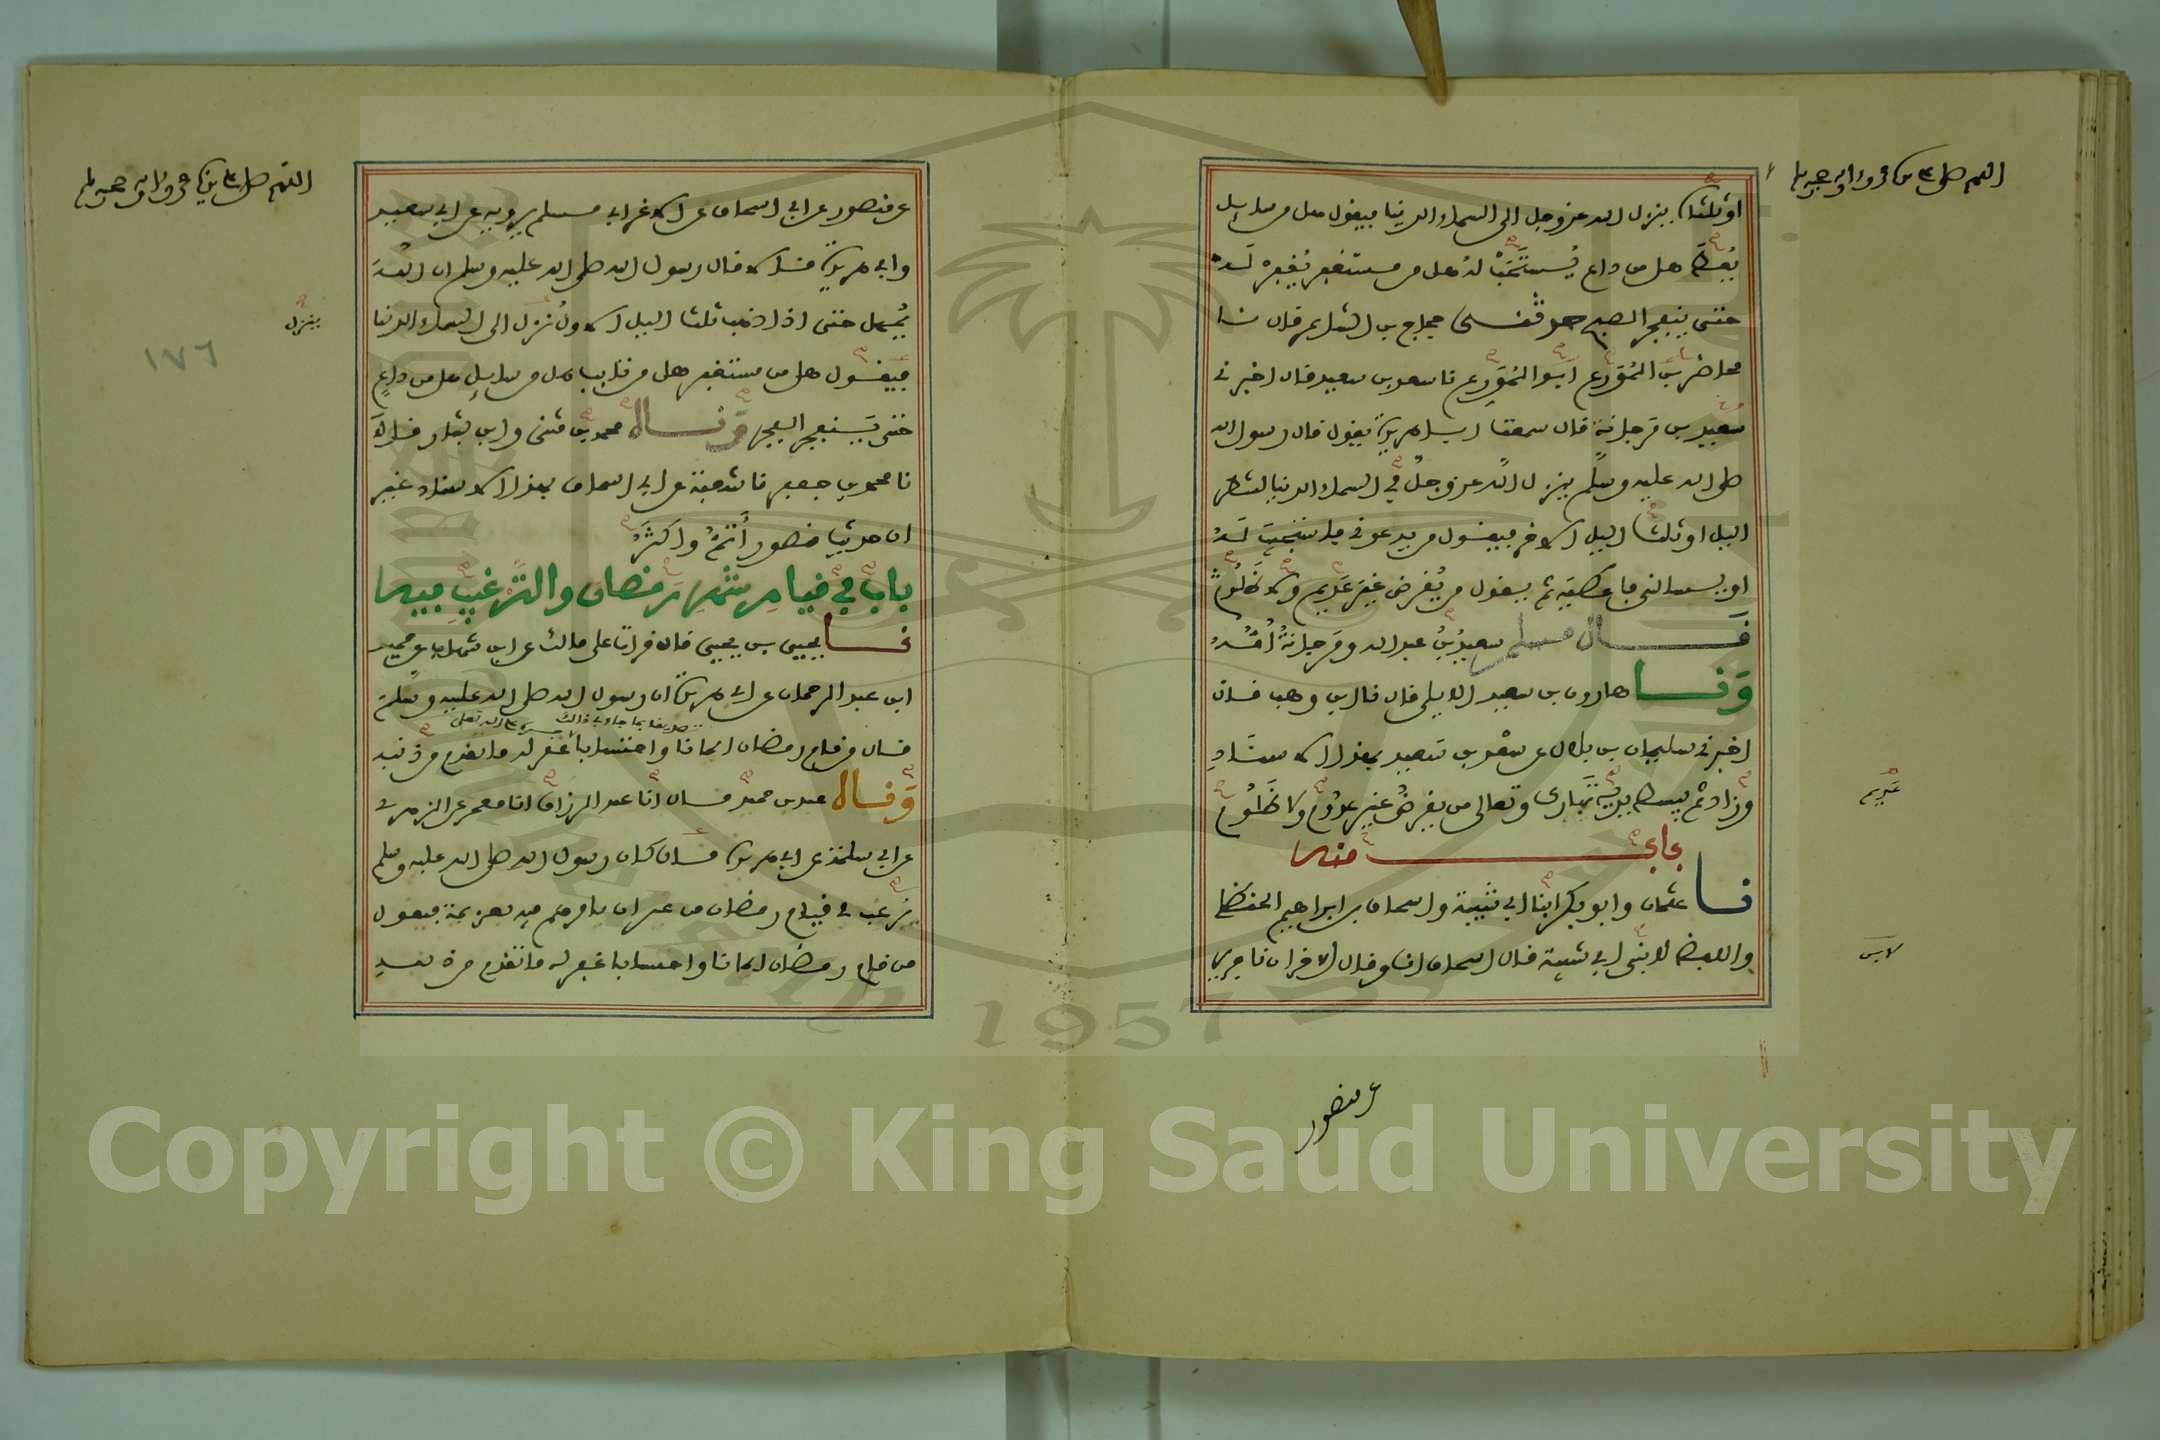 اللهم صل على سيدنا محمد وءاله وصحبه وسلم
او ثلثاه ينزل الله عز وجل الى السماء الدنيا فيقول هل من سايل
يعطى هل من داع يستجاب له هل من مستغفر يغفر له
حتى ينفجر الصبح حدثنى حجاج بن الشاعر قال نا
محاضر بن المورع ابو المورع نا سعد بن سعيد قال اخبرنى
سعيد بن مرجانة قال سمعت ابا هريرة يقول قال رسول الله
صلى الله عليه وسلم ينزل الله عز وجل في السماء الدنيا لشطر
الليل او ثلث الليل الاخر فيقول من يدعونى فاستجيب له
او يسالنى فاعطيه ثم يقول من يقرض غير عديم ولا ظلوم
قال مسلم سعيد بن عبد الله ومرجانة امه
ونا هارون بن سعيد الايلى قال نا ابن وهب قال
اخبرنى سليمان بن بلال عن سعد بن سعيد بهذا الاسناد
وزاد ثم يبسط يديه تبارك وتعالى من يقرض غير عدوم ولا ظلوم
عديم
باب منه
نا عثمان وابو بكر ابنا ابي شيبة واسحاق بن ابراهيم الحنظلى
واللفظ لابنى ابي شيبة قال اسحاق انا وقال الاخران نا جرير
لابنى
عن منصور
اللهم صل على سيدنا محمد وءاله وصحبه وسلم
عن منصور عن ابي اسحاق عن الاغر ابي مسلم يرويه عن ابي سعيد
وابي هريرة قالا قال رسول الله صلى الله عليه وسلم ان الله
يمهل حتى اذا ذهب ثلث الليل الاول نزل الى السماء الدنيا
ينزل
فيقول هل من مستغفر هل من تايب هل من سايل هل من داع
١٧٦
حتى ينفجر الفجر وناه محمد بن مثنى وابن بشار قالا
نا محمد بن جعفر نا شعبة عن ابي اسحاق بهذا الاسناد غير
ان حديث منصور أتم واكثر
باب في قيام شهر رمضان والترغيب فيه
نا يحيى بن يحيى قال قرات على مالك عن ابن شهاب عن حميد
ابن عبد الرحمان عن ابي هريرة ان رسول الله صلى الله عليه وسلم
قال من قام رمضان ايمانا واحتسابا غفر له ما تقدم من ذنبه
وناه عبد بن حميد قال انا عبد الرزاق انا معمر عن الزهرى
عن ابي سلمة عن ابي هريرة قال كان رسول الله صلى الله عليه وسلم
يرغب في قيام رمضان من غير ان يامرهم فيه بعزيمة فيقول
من قام رمضان ايمانا واحتسابا غفر له ما تقدم من ذنبه
1957
Copyright © King Saud University